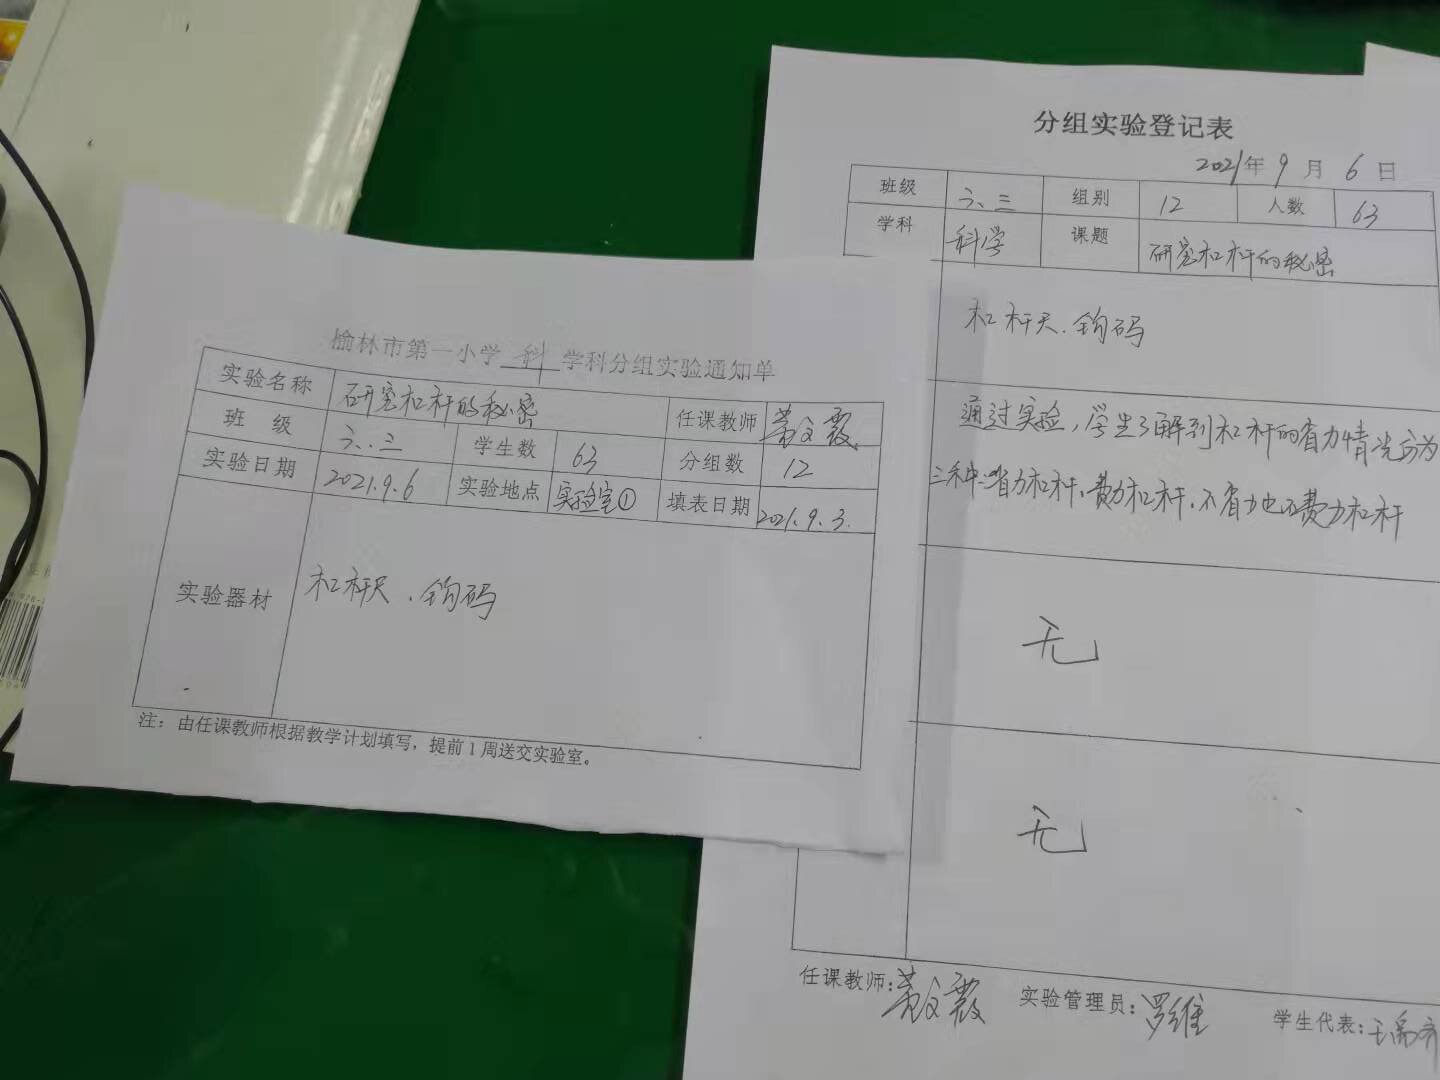 榆林市第一小学 科 学科分组实验通知单
实验名称 研究杠杆的秘密 任课教师
班 级 六.三 学生数 63 分组数 12
实验日期 2021.9.6 实验地点 实验室① 填表日期 2021.9.3.
实验器材 杠杆尺.钩码
注：由任课教师根据教学计划填写，提前1周送交实验室。
分组实验登记表
2021年 9 月 6 日
班级 六.三 组别 12 人数 63
学科 科学 课题 研究杠杆的秘密
杠杆尺.钩码
通过实验,学生了解到杠杆的省力情况分为
三种:省力杠杆,费力杠杆.不省力也不费力杠杆
无
无
任课教师: 实验管理员:罗维 学生代表: